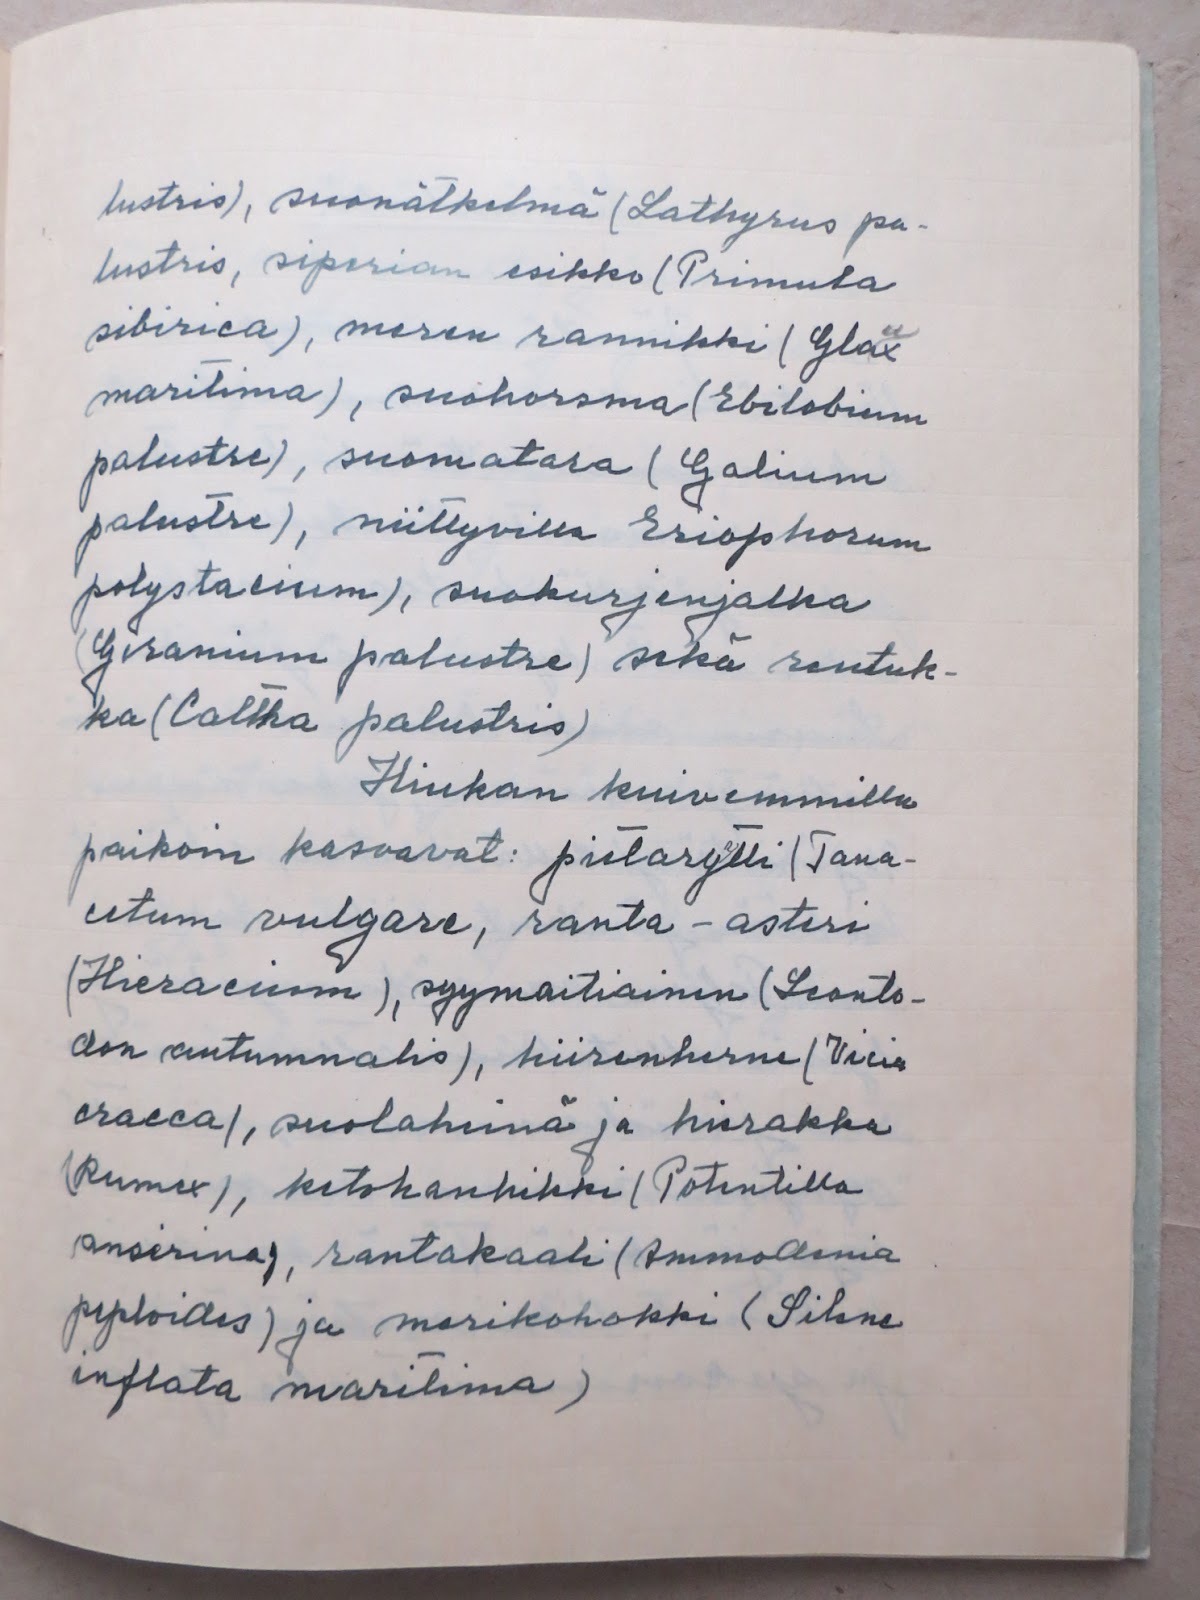 lustris), suonätkelmä (Lathyrus pa-
lustris, siperian esikko (Primula
sibirica), meren rannikki (Glaux
maritima), suohorsma (Ebilobium
palustre), suomatara (Galium
palustre), niittyvilla Eriophorum
polystacium), suokurjenjalka
(Geranium palustre) sekä rentuk-
ka (Caltha palustris)
Hiukan kuivemmilla
paikoin kasvavat: pietaryrtti (Tana-
cetum vulgare, ranta-asteri
(Hieracium), syymaitiainen (Leonto-
don autumnalis), hiirenherne (Vicia
cracca), suolaheinä ja hierakka
(Rumex), ketohanhikki (Potentilla
anserina), rantakaali (Ammodenia
peploides) ja merikohokki (Silene
inflata maritima)